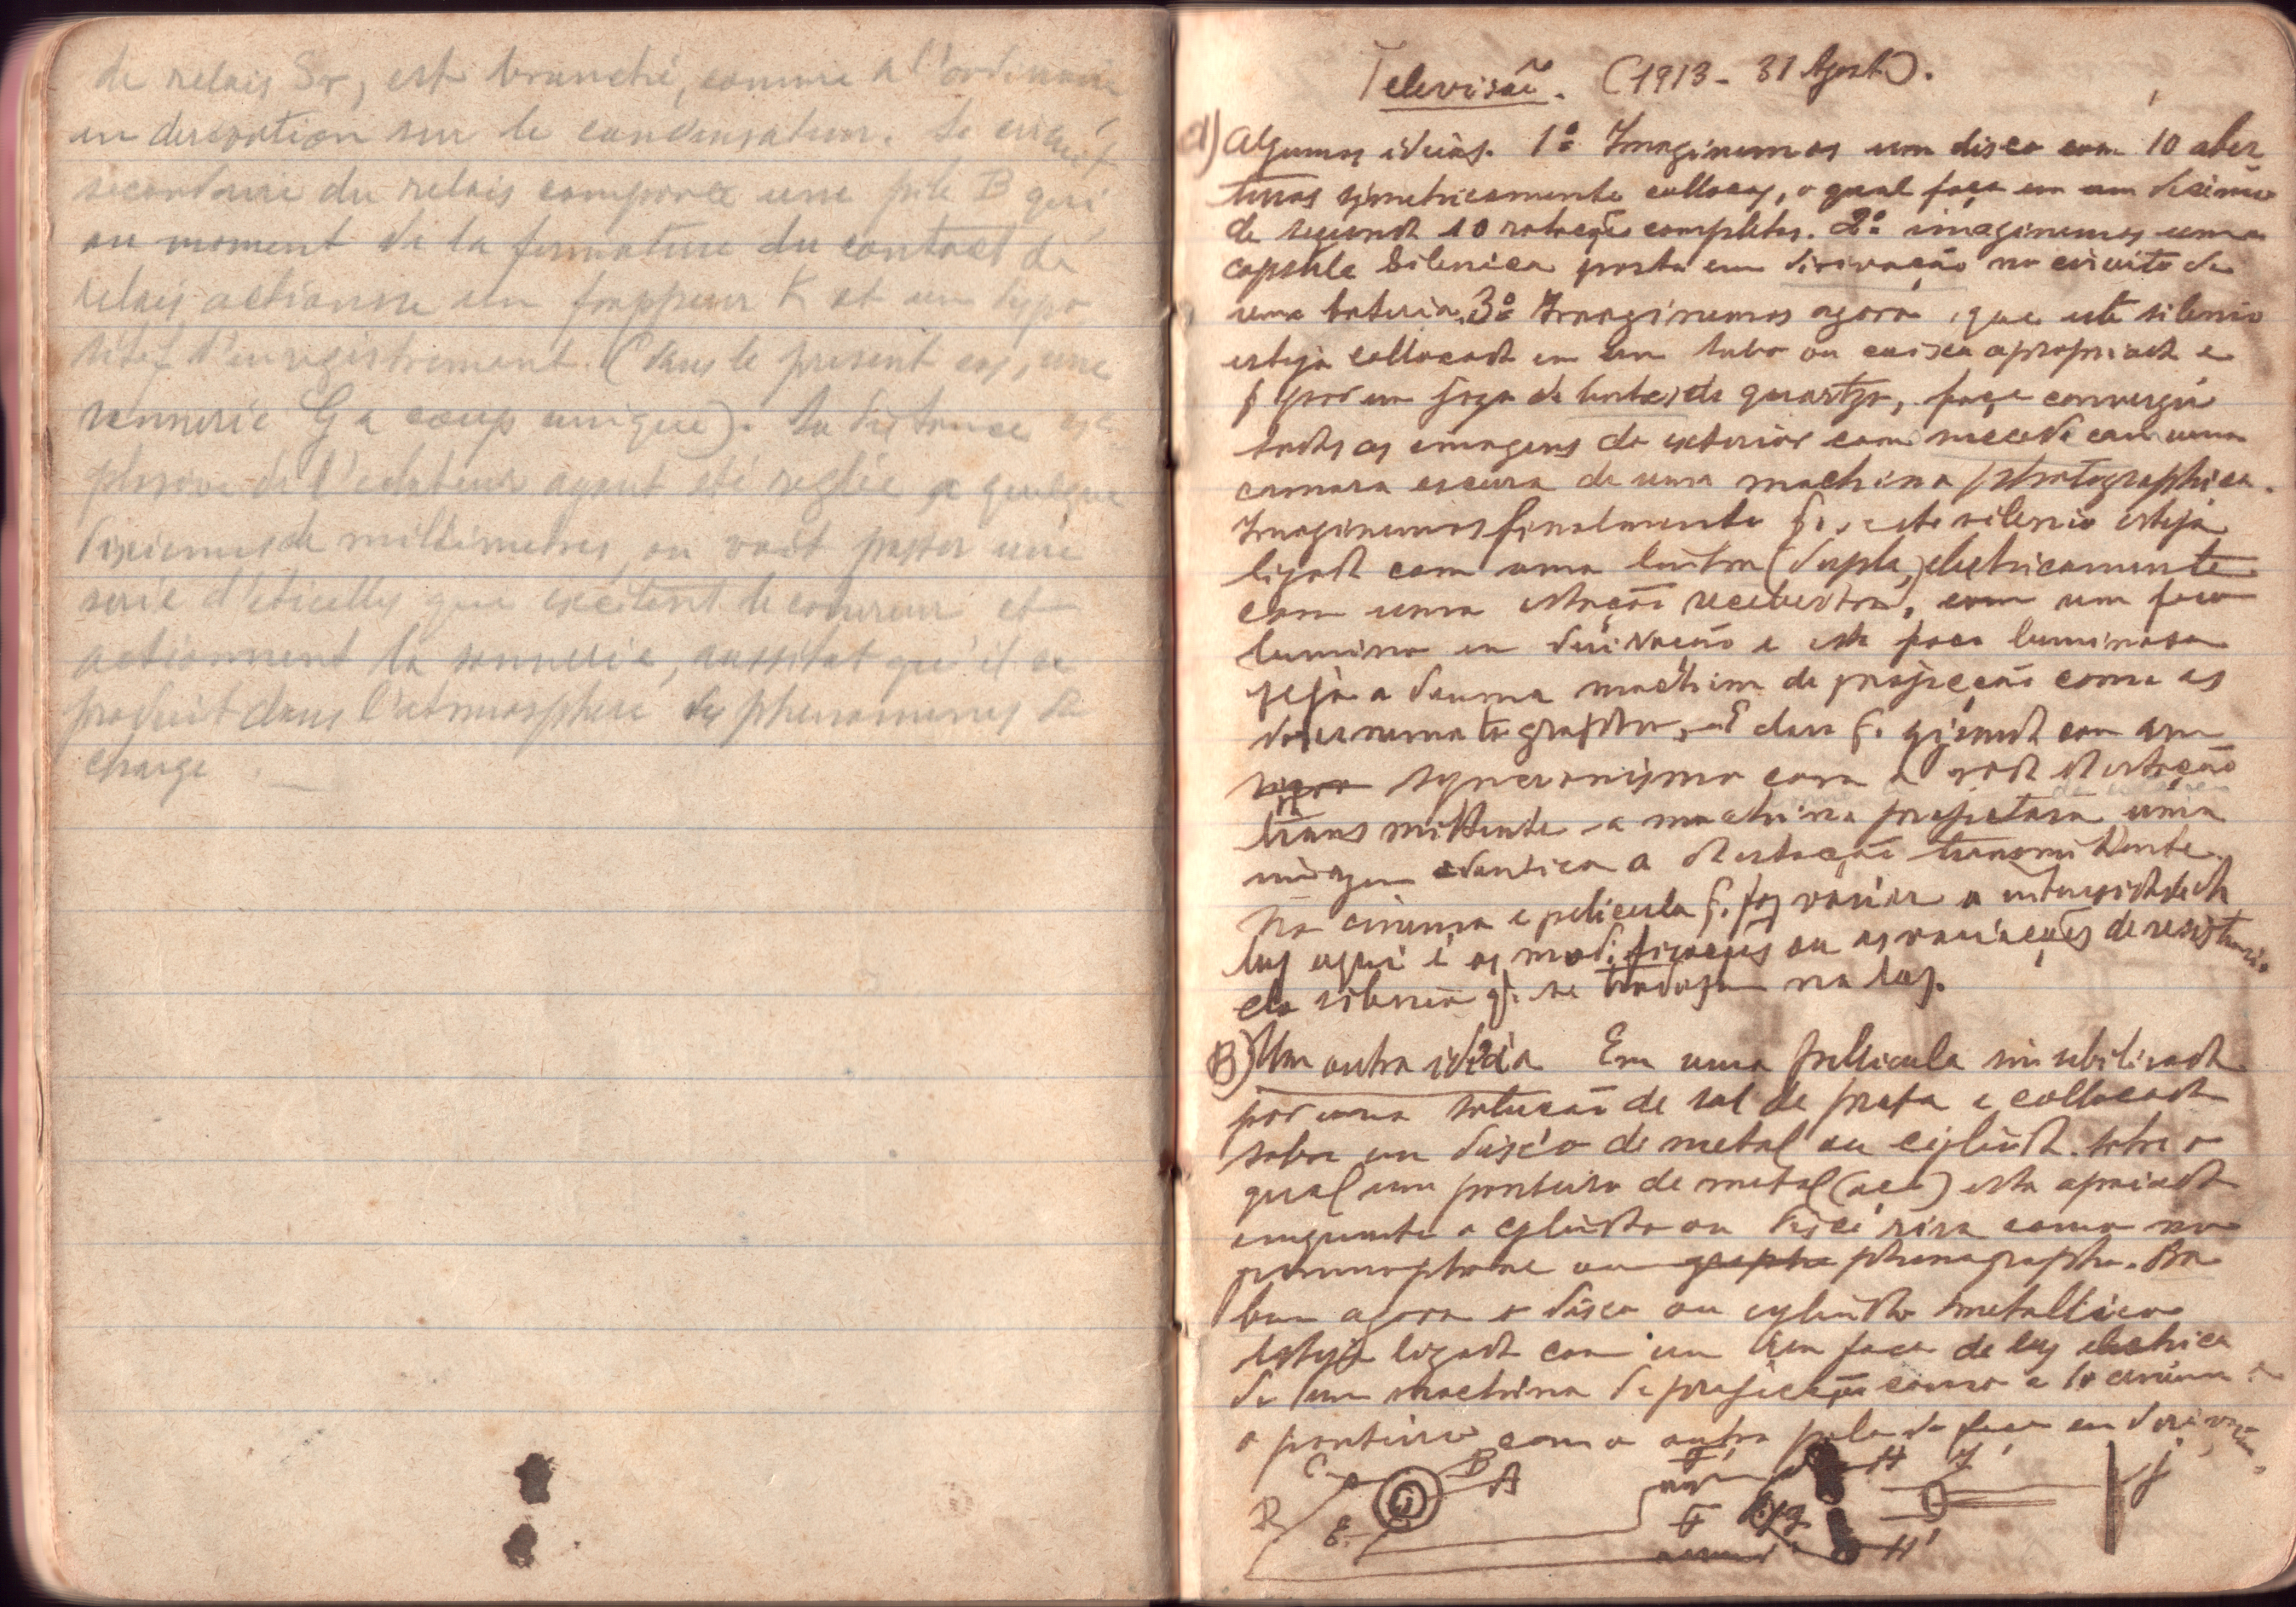 de relais Sr, est branché, comme a l'ordinaire
en derivation sur le condensateur. Le circuit
secondaire du relais comporte une pile B qui
au moment de la fermature du contact de
relais actionne un frappeur K et un dispo
sitif d'enregistrement (dans le present cas, une
sonnerie G a coup unique). La distance ex
plosive de l'eclateur ayant été reglée a quelque
dixiemes de millimetres, on voit passer une
serie d'eticelles que excitent le cohereur et
actionnent la sonnerie, aussitot qu'il se
produit dans l'atmosphere des phenomenes de
charge
Televisão. (1913 - 31 Agosto).
A) Algumas ideias. 1º Imaginemos um disco com 10 aber
turas symetricamente collocas, o qual faça em um decimo
de segundo 10 rotações completas. 2º imaginemos uma
capsula silenica posta em dirivação no circuito de
uma bateria. 3º Imaginemos agora, que este silenio
esteja collocado em um tubo ou caixa apropriada e
q por um jogo de lentes de quartzo, faça convergir
todas as imagens do exterior como succede com uma
camara escura de uma machina photographica.
Imaginemos finalmente q. este silenio esteja
ligado com uma linha (dupla,) electricamente
com uma estação recebedora, com um foco
luminoso em dirivação e este foco luminoso
seja o duma machina de projecção como as
do cinematographo, é claro q. girando com um
syncronismo com a roda da estação
transmittente a machina projetara uma
imagem edentica a da estação transmittente.
No cinema e pelicula q. faz variar a intensidade da
luz aqui é as modificações ou as variações de resistencia
do silenio q. se traduzem na luz.
B) Um outra idéia Em uma pellicula sinsibilisada
por uma solução de sal de prata e collocada
sobre um disco de metal ou cylindro. sobre o
qual um ponteiro de metal (aço) esta apoiado
emquanto o cylindro ou disco gira como no
grammophone ou grapho phonographo. Ora
bem agora o disco ou cylindro metallico
esteja ligado com um um foco de luz electrica
de uma machina de projecção como a do cinema e
o ponteiro com o outro polo do foco em dirivação.
C B A F H J j
D E F g H'